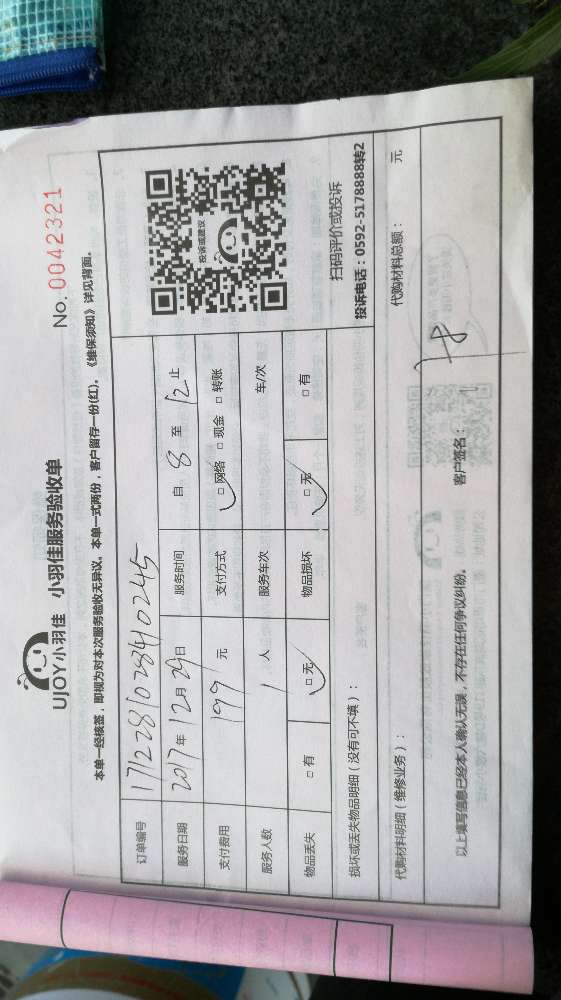 UJOY小羽佳 小羽佳服务验收单
No. 0042321
本单一经核签，即视为对本次服务验收无异议。本单一式两份，客户留存一份(红)。《维保须知》详见背面。
订单编号 171228102840245
服务日期 2017年12月29日 服务时间 自 8 至 12 止
支付费用 199 元 支付方式 □网络 □现金 □转账
服务人数 1 人 服务车次 车/次
物品丢失 □有 □无 物品损坏 □无 □有
投诉或建议
扫码评价或投诉
投诉电话：0592-5178888转2
损坏或丢失物品明细（没有可不填）：
代购材料明细（维修业务）： 代购材料总额： 元
以上填写信息已经本人确认无误，不存在任何争议纠纷。 客户签名：